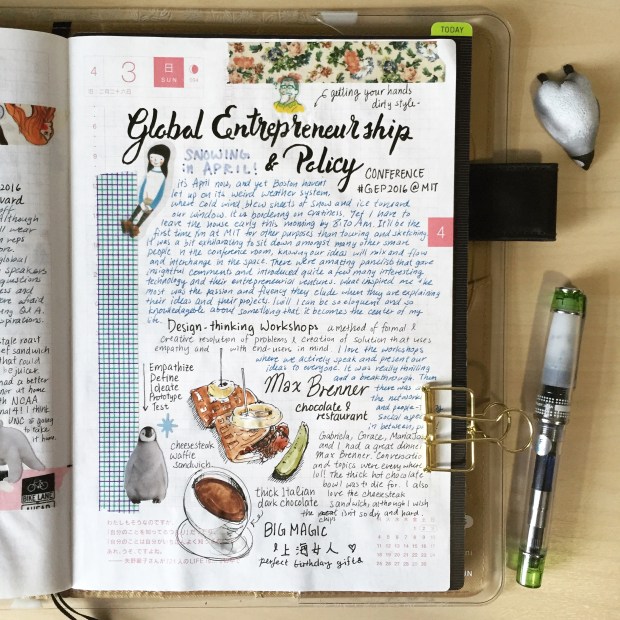 TODAY
4 3 日
SUN
getting your hands
dirty style-
Global Entrepreneurship
& Policy
CONFERENCE
#GEP2016@MIT
SNOWING
in APRIL!
it's April now, and yet Boston haven't
let up on its weird weather system,
where cold wind blew sheets of snow and ice toward
our window. It is bordering on craziness. Yet I have to
leave the house early this morning by 8:20 am. It'll be the
first time I'm at MIT for other purposes than touring and sketching.
It was a bit exhilarating to sit down amongst many other smart
people in the conference room, knowing our ideas will mix and flow
and interchange in the space. There were amazing panelists that gave
insightful comments and introduced quite a few many interesting
technology and their entrepreneurial ventures. What inspired me the
most was the passion and fluency they elude when they are explaining
their ideas and their projects. I will I can be so eloquent and so
knowledgable about something that it becomes the center of my
life.
4
Design-thinking Workshops a method of formal &
creative resolution of problems & creation of solution that uses
empathy and with end-users in mind. I love the workshops
where we actively speak and present our
ideas to everyone. It was really thrilling
and a breakthrough. Then
there was
the network
and people-
social aspe
in between,
Empathize
Define
Ideate
Prototype
Test
Max Brenner
chocolate &
restaurant
Gabriela, Grace, Maria Jose
and I had a great dinner
Max Brenner. Conversation
and topics were everywhere
lol! The thick hot chocolate
bowl was to die for. I also
love the cheesesteak
sandwich, although I wish
the chips isn't so dry and hard.
cheesesteak
waffle
sandwich
thick Italian
dark chocolate
BIG MAGIC
& 上海女人 ♡
perfect birthday gifts
2016
Although
wear
reps
global
speakers
question
and
were afraid
ng Q&A.
aspirations.
style roast
sandwich
that could
juice
had a better
or at home
with NOAA
I think
UNC is going
to take
it home.
BIKE LANE
AHEAD